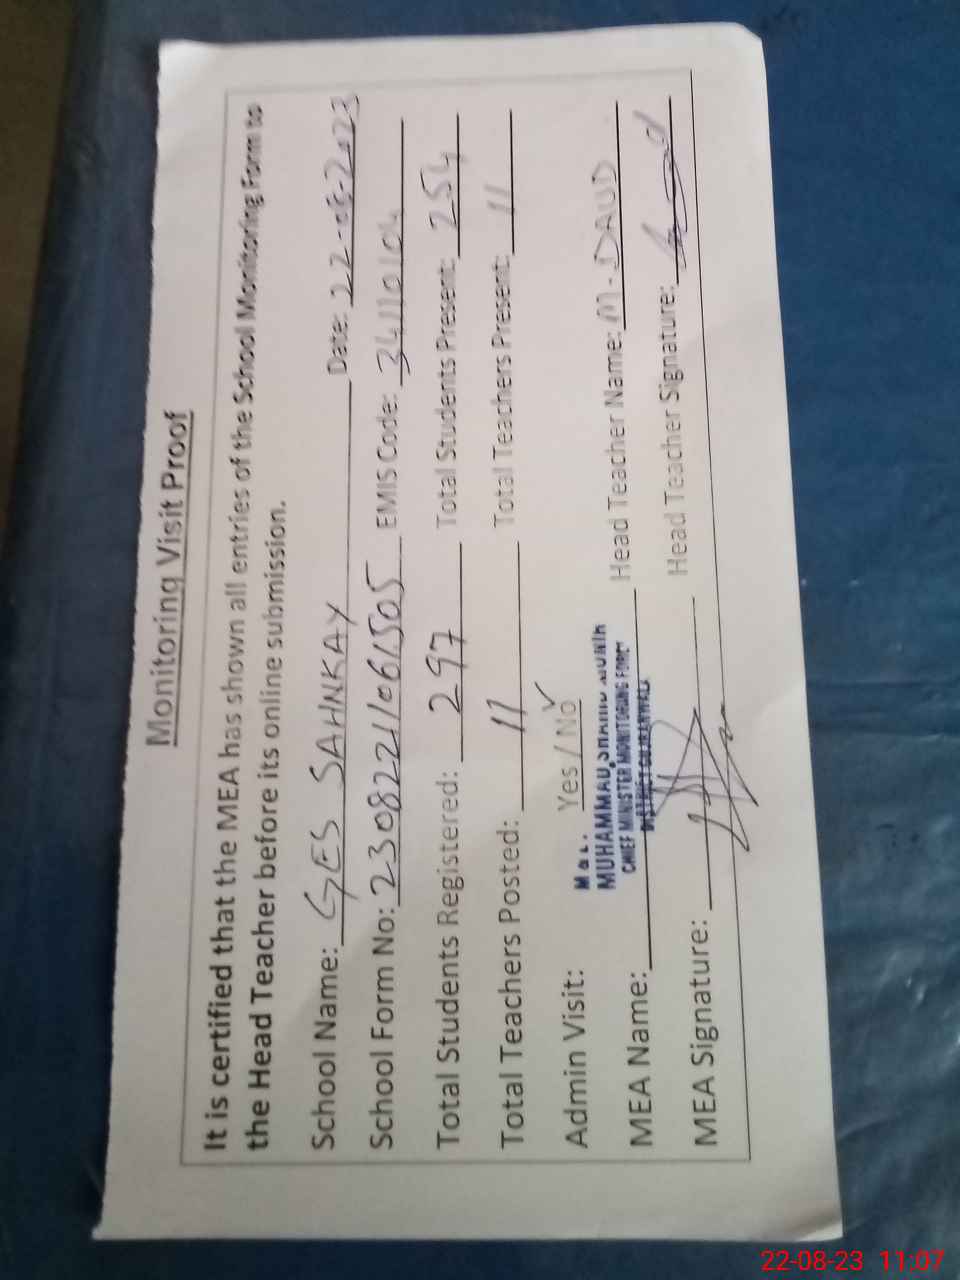 Monitoring Visit Proof
It is certified that the MEA has shown all entries of the School Monitoring Form to
the Head Teacher before its online submission.
School Name: GES SAHNKAY Date: 22-08-2023
School Form No: 23082211061505 EMIS Code: 34110104
Total Students Registered: 297 Total Students Present: 254
Total Teachers Posted: 11 Total Teachers Present: 11
Admin Visit: Yes / No ✓
MUHAMMAD
CHIEF MINISTER MONITORING FORCE
DISTRICT GUJRANWALA
MEA Name: Head Teacher Name: M - DAUD
MEA Signature: Head Teacher Signature:
22-08-23 11:07